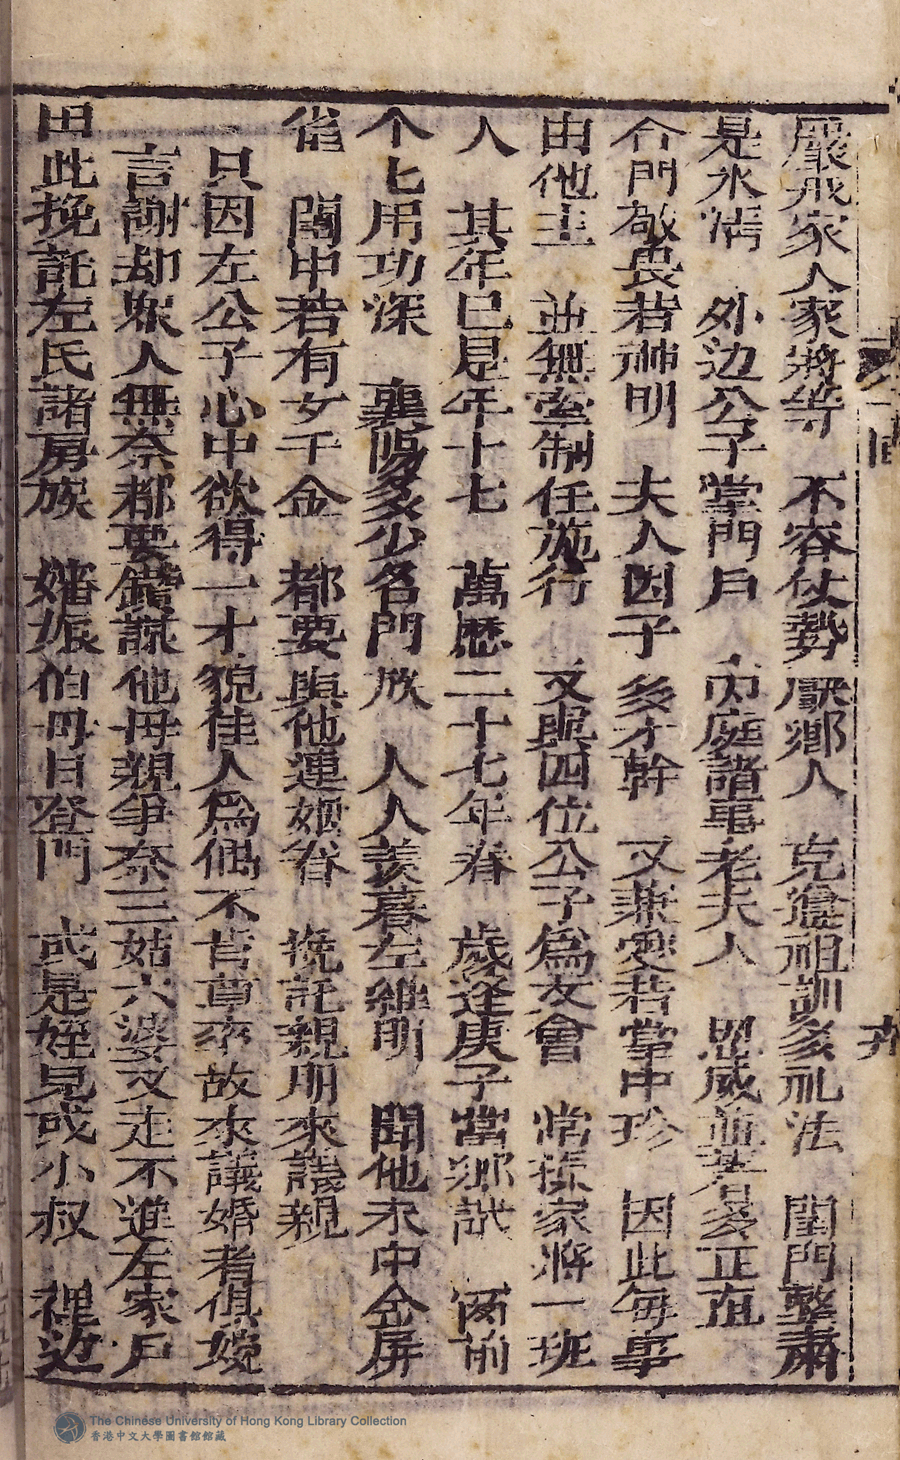 嚴戒家人家將等　不容仗勢厭鄉人　克遵祖訓多礼法　閨門整肅
是氷清　外边公子掌門戶　內庭諸事老夫人　恩威並著多正直
合門敬畏若神明　夫人因子多才幹　又兼愛若掌中珍　因此每事
由他主　並無室制任施行　又與四位公子爲友會　常操家將一班
人　其年已是年十七　萬歷二十七年春　歲逢庚子當鄉試　両前
个七用功深　襄陽多少名門族　人人羨慕左維明　聞他未中金屏
雀　閨中若有女千金　都要與他連姻眷　挽託親朋來議親
只因左公子心中欲得一才貌佳人爲偶不肯草率故來議婚者俱婉
言謝却衆人無奈都要鑽謀他母親爭奈三姑六婆又走不進左家戶
因此挽託左氏諸房族　嬸娠伯母日登門　或是姪兒或小叔　裡边
The Chinese University of Hong Kong Library Collection
香港中文大學圖書館館藏